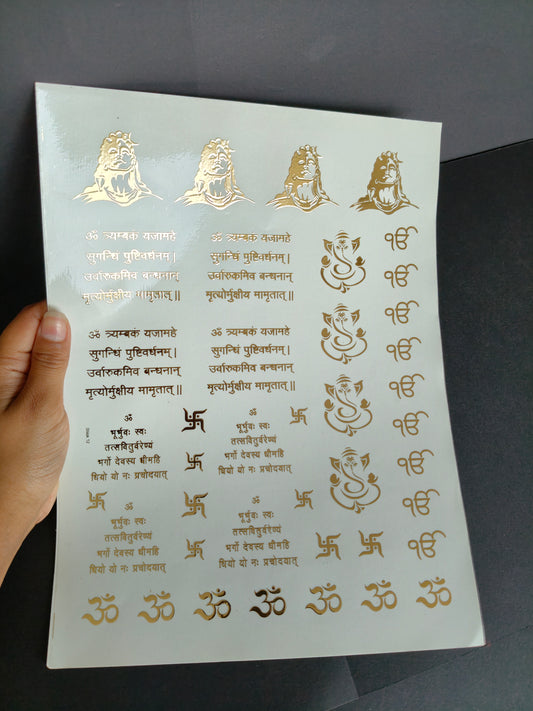 ॐ त्र्यम्बकं यजामहे
सुगन्धिं पुष्टिवर्धनम्।
उर्वारुकमिव बन्धनान्
मृत्योर्मुक्षीय मामृतात्॥
ॐ त्र्यम्बकं यजामहे
सुगन्धिं पुष्टिवर्धनम्।
उर्वारुकमिव बन्धनान्
मृत्योर्मुक्षीय मामृतात्॥
ੴ
ੴ
ੴ
ੴ
ॐ त्र्यम्बकं यजामहे
सुगन्धिं पुष्टिवर्धनम्।
उर्वारुकमिव बन्धनान्
मृत्योर्मुक्षीय मामृतात्॥
ॐ त्र्यम्बकं यजामहे
सुगन्धिं पुष्टिवर्धनम्।
उर्वारुकमिव बन्धनान्
मृत्योर्मुक्षीय मामृतात्॥
ੴ
ੴ
ੴ
ੴ
ੴ
ॐ
भूर्भुवः स्वः
तत्सवितुर्वरेण्यं
भर्गो देवस्य धीमहि
धियो यो नः प्रचोदयात्
ॐ
भूर्भुवः स्वः
तत्सवितुर्वरेण्यं
भर्गो देवस्य धीमहि
धियो यो नः प्रचोदयात्
ॐ
भूर्भुवः स्वः
तत्सवितुर्वरेण्यं
भर्गो देवस्य धीमहि
धियो यो नः प्रचोदयात्
ॐ
भूर्भुवः स्वः
तत्सवितुर्वरेण्यं
भर्गो देवस्य धीमहि
धियो यो नः प्रचोदयात्
ॐ ॐ ॐ ॐ ॐ ॐ ॐ